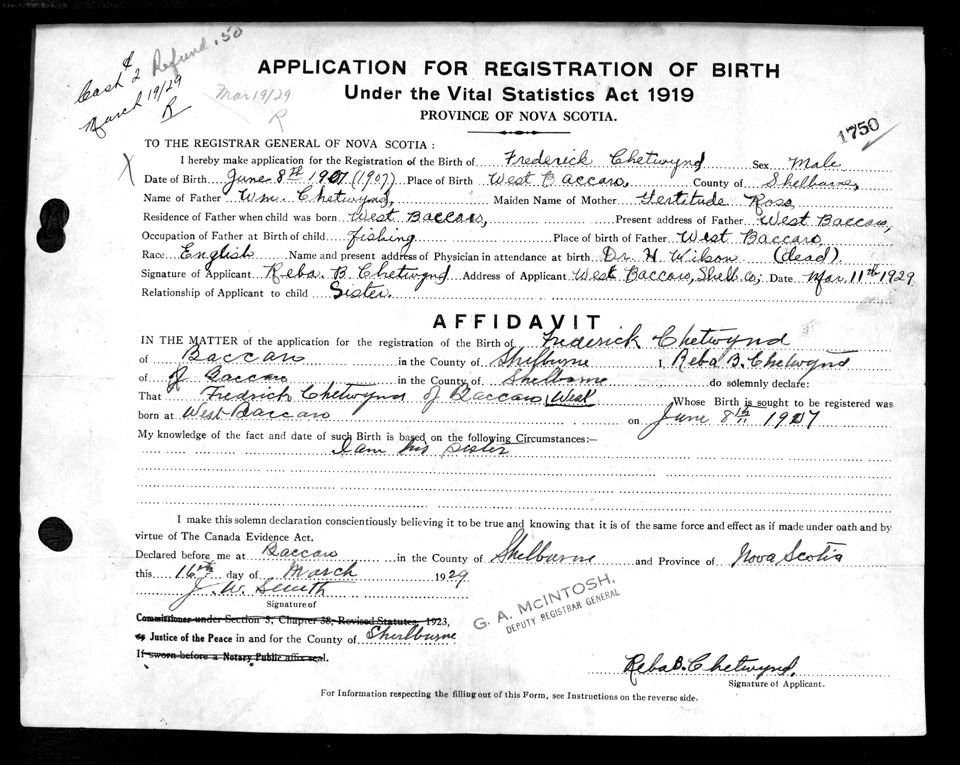 Cash $2 Refund .50
March 19/29
R
Mar 19/29
R
APPLICATION FOR REGISTRATION OF BIRTH
Under the Vital Statistics Act 1919
PROVINCE OF NOVA SCOTIA.
1750
TO THE REGISTRAR GENERAL OF NOVA SCOTIA :
X
I hereby make application for the Registration of the Birth of Frederick Chetwynd Sex Male
Date of Birth June 8th 1907 (1907) Place of Birth West Baccaro, County of Shelburne,
Name of Father Wm. Chetwynd, Maiden Name of Mother Gertitude Ross,
Residence of Father when child was born West Baccaro, Present address of Father West Baccaro,
Occupation of Father at Birth of child fishing Place of birth of Father West Baccaro,
Race English Name and present address of Physician in attendance at birth Dr. H. Wilson (dead).
Signature of Applicant Reba. B. Chetwynd Address of Applicant West Baccaro, Shelb. Co; Date Mar 11th 1929
Relationship of Applicant to child Sister.
AFFIDAVIT
IN THE MATTER of the application for the registration of the Birth of Frederick Chetwynd
of Baccaro in the County of Shelburne I, Reba B. Chetwynd
of of Baccaro in the County of Shelborne do solemnly declare:
That Fredrich Chetwynd of Baccaro, West Whose Birth is sought to be registered was
born at West Baccaro on June 8th 1907
My knowledge of the fact and date of such Birth is based on the following Circumstances:—
I am his sister
I make this solemn declaration conscientiously believing it to be true and knowing that it is of the same force and effect as if made under oath and by
virtue of The Canada Evidence Act.
Declared before me at Baccaro in the County of Shelburne and Province of Nova Scotia
this 16th day of March 1929
J. W. Smith
Signature of
G. A. McINTOSH,
DEPUTY REGISTRAR GENERAL
Commissioner under Section 3, Chapter 38, Revised Statutes, 1923,
or Justice of the Peace in and for the County of Sherlburne
If sworn before a Notary Public affix seal.
Reba B. Chetwynd,
Signature of Applicant.
For Information respecting the filling out of this Form, see Instructions on the reverse side.